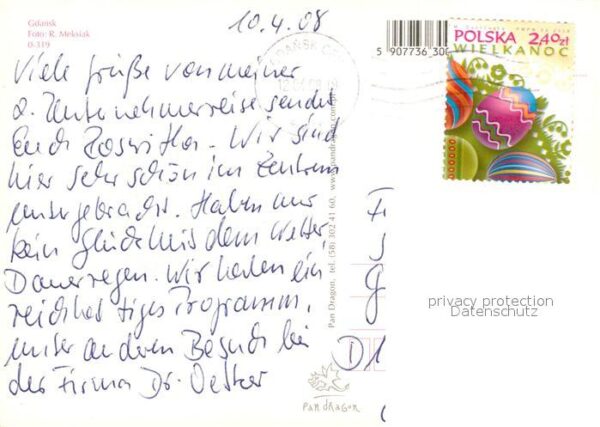 Gdańsk
Foto: R. Meksiak
0-319
10.4.08
5 907736 306
POLSKA 2,40 zł
WIELKANOC
Viele Grüße von meiner
2. Unternehmerreise sendet
Euch Roswitha. Wir sind
hier sehr schön im Zentrum
untergebracht. Haben nur
kein Glück mit dem Wetter
Dauerregen. Wir haben ein
reichhaltiges Programm,
unter anderem Besuch bei
der Firma Dr. Oetker
Pan Dragon, tel. (58) 302 41 60, www.pandragon.com.pl
GDAŃSK
F
G
D 1
privacy protection
Datenschutz
pan dragon